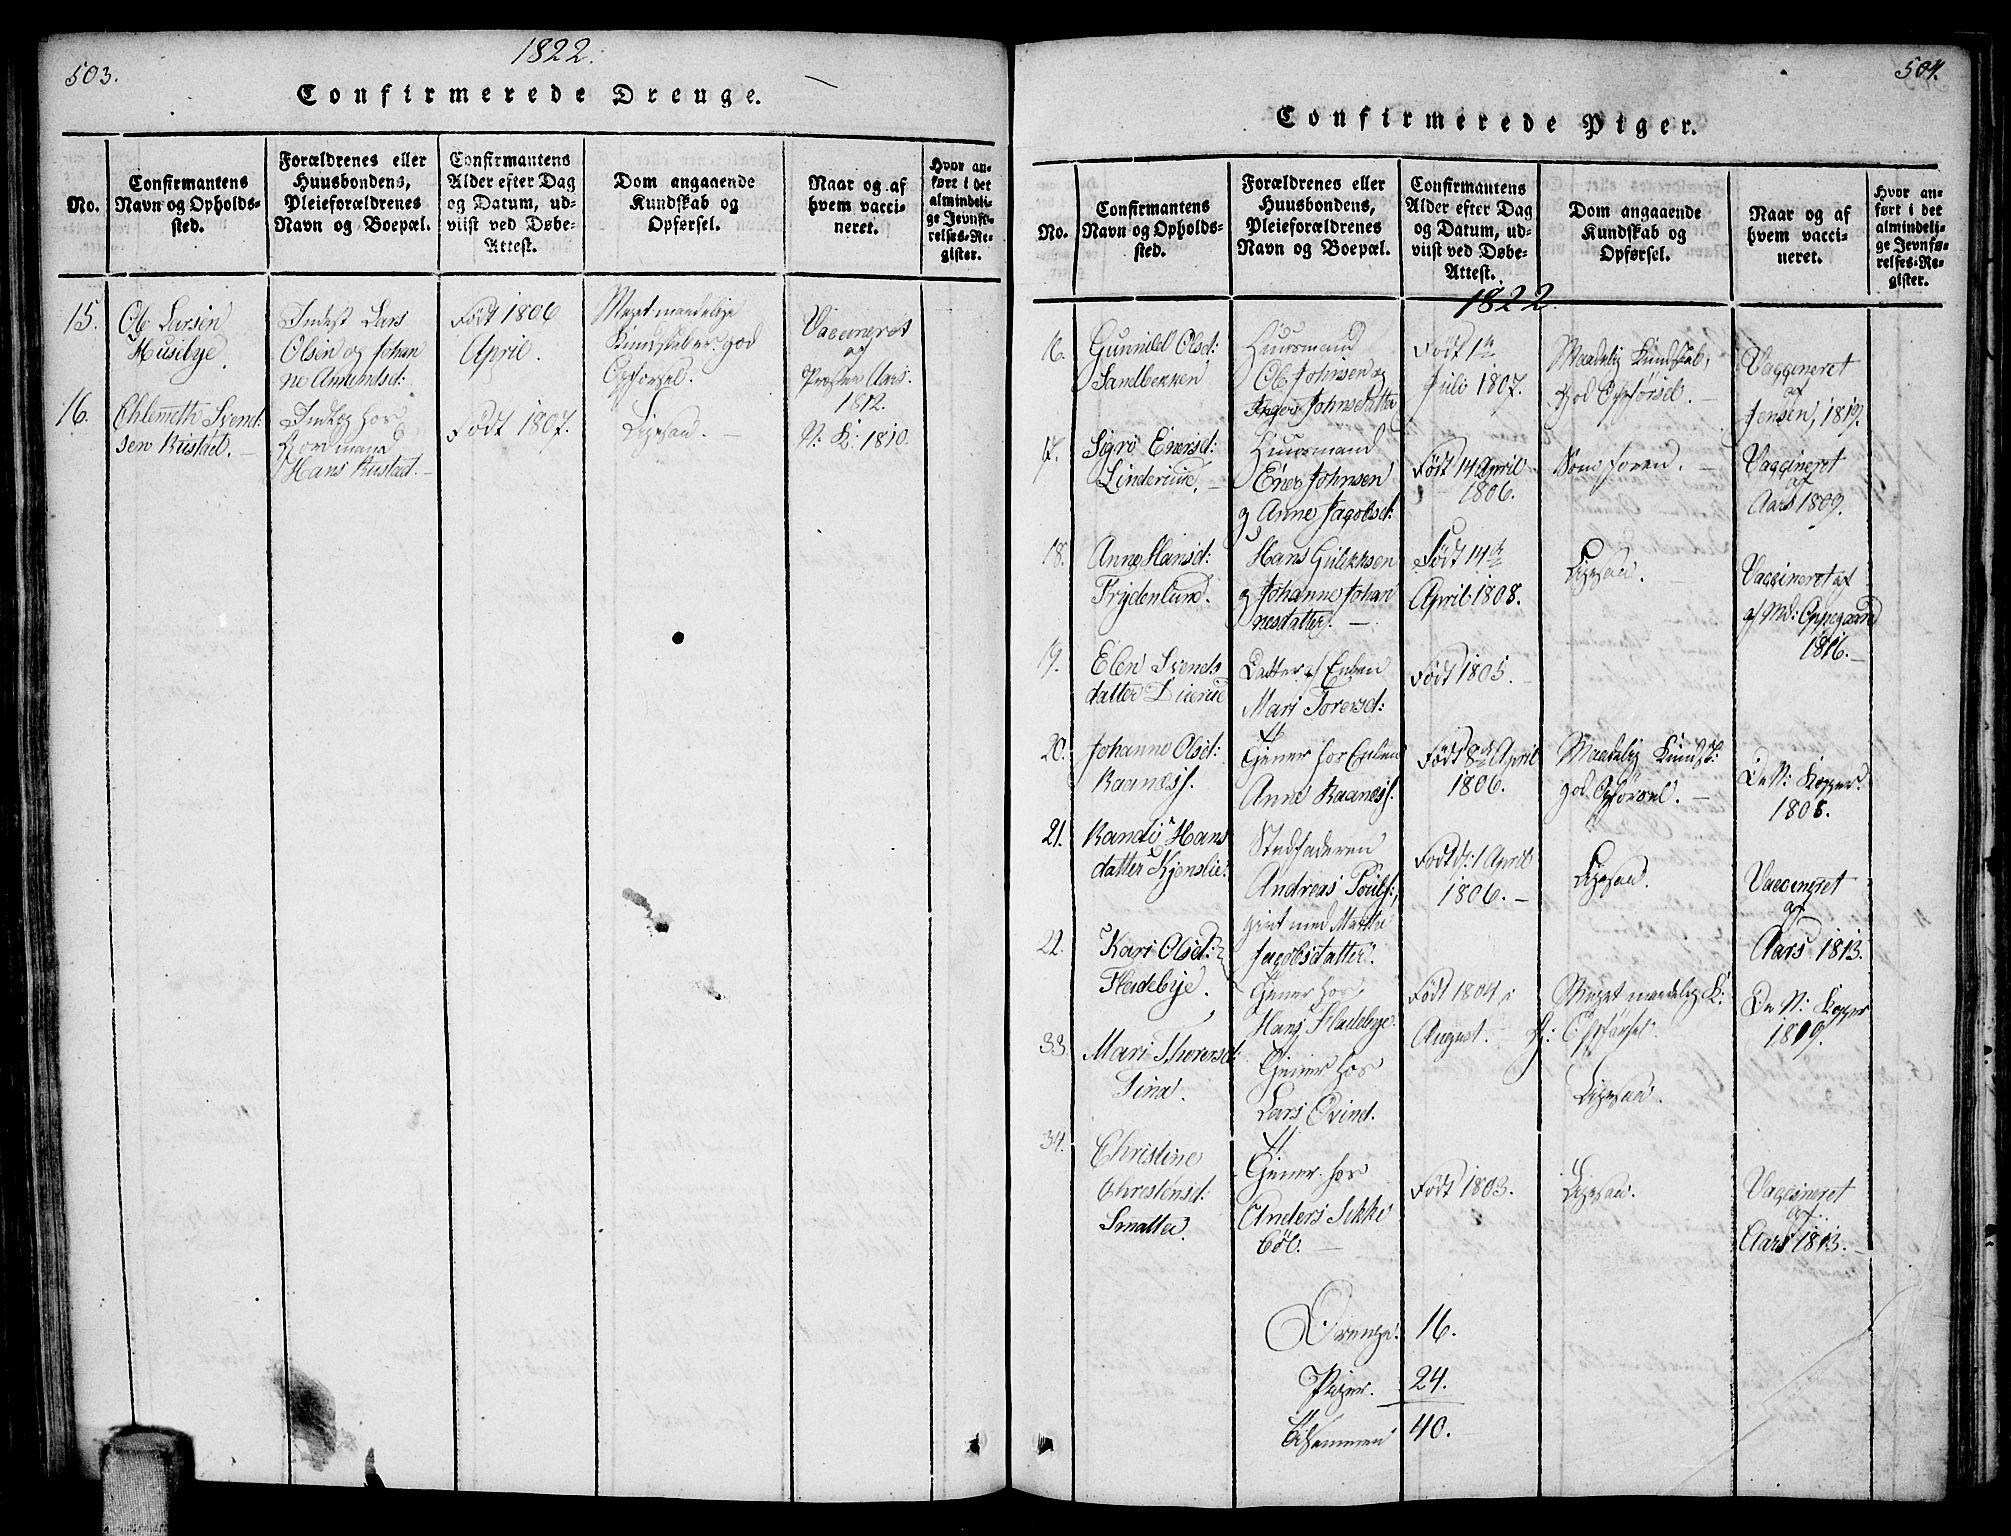 503.
1822.
Confirmerede Drenge.
No.
Confirmantens
Navn og Opholds-
sted.
Forældrenes eller
Huusbondens,
Pleieforældrenes
Navn og Boepæl.
Confirmantens
Alder efter Dag
og Datum, ud-
viist ved Døbe-
Attest.
Dom angaaende
Kundskab og
Opførsel.
Naar og af
hvem vacci-
neret.
Hvor an-
ført i det
almindeli-
ge Jevnfø-
relses-Re-
gister.
15.
Ole Larsen
Musebye.
Indest Lars
Olsen og Johan
ne Amundsd:
Født 1806
April.
Meget maadelige
Kundskaber god
Opførsel.
Vaccineret
af
Præsten Aars.
1812.
16.
Svend
sen Rustad.
hos
Hans Rustad.
Født 1807.
Ligesaa.
N: K: 1810.
504.
Confirmerede Piger.
No.
Confirmantens
Navn og Opholds-
sted.
Forældrenes eller
Huusbondens,
Pleieforældrenes
Navn og Boepæl.
Confirmantens
Alder efter Dag
og Datum, ud-
viist ved Døbe-
Attest.
Dom angaaende
Kundskab og
Opførsel.
Naar og af
hvem vacci-
neret.
Hvor an-
ført i det
almindeli-
ge Jevnfø-
relses-Re-
gister.
1822
16.
Gunnild Olsd:
Sandbekken
Huusmand
Ole Johnsen og
Inger Johnsdatter
Født 1te
Juli 1807.
Maadelig Kundskab,
god Opførsel.
Vaggineret
af
Jensen, 1819.
17.
Sigrö Enersd:
Linderud.
Huusmand
Ener Johnsen
og Anne Jagobsd:
Født 14 April
1806.
Som foren.
Vaggineret
af
Aars 1809.
18.
Anne Hansd:
Frydenlund.
Hans Gulikksen
og Johanne Johan
nesdatter.
Født 14de
April 1808.
Ligesaa.
Vaggineret af
af Md: Oppegaard
1816.
19.
Elen Svends
datter
Datter af Enken
Mari Torersd:
Født 1805.
20.
Johanne Olsd:
Raanesf.
Tjener hos Enken
Anne Raanesf.
Født 8de April
1806.
Maadelig Kundsk:
god Opførsel.
De N: Kopper
1808.
21.
Randi Hans
datter Kjenslie:
Stedfaderen
Andreas Poulf:,
givt med Marthe
Jagobsdatter.
Født d: 1 April
1806.
Ligesaa.
Vaccineret
af
Aars 1813.
22.
Kari Olsd:
Fladebye.
Tjener hos
Hans Fladebye.
Født 1804 i
August.
Meget maadelig K:
g: Opførsel.
De N: Kopper
1819.
33.
Mari Thorersd:
Tjener hos
Lars Ovind.
Ligesaa.
34.
Christine
Christensd:
Smatte.
Tjener hos
Anders Sikke
böl.
Født 1803.
Ligesaa.
Vaggineret
af
Aars 1813.
Drenge: 16.
Piger. 24.
Tilsammen 40.